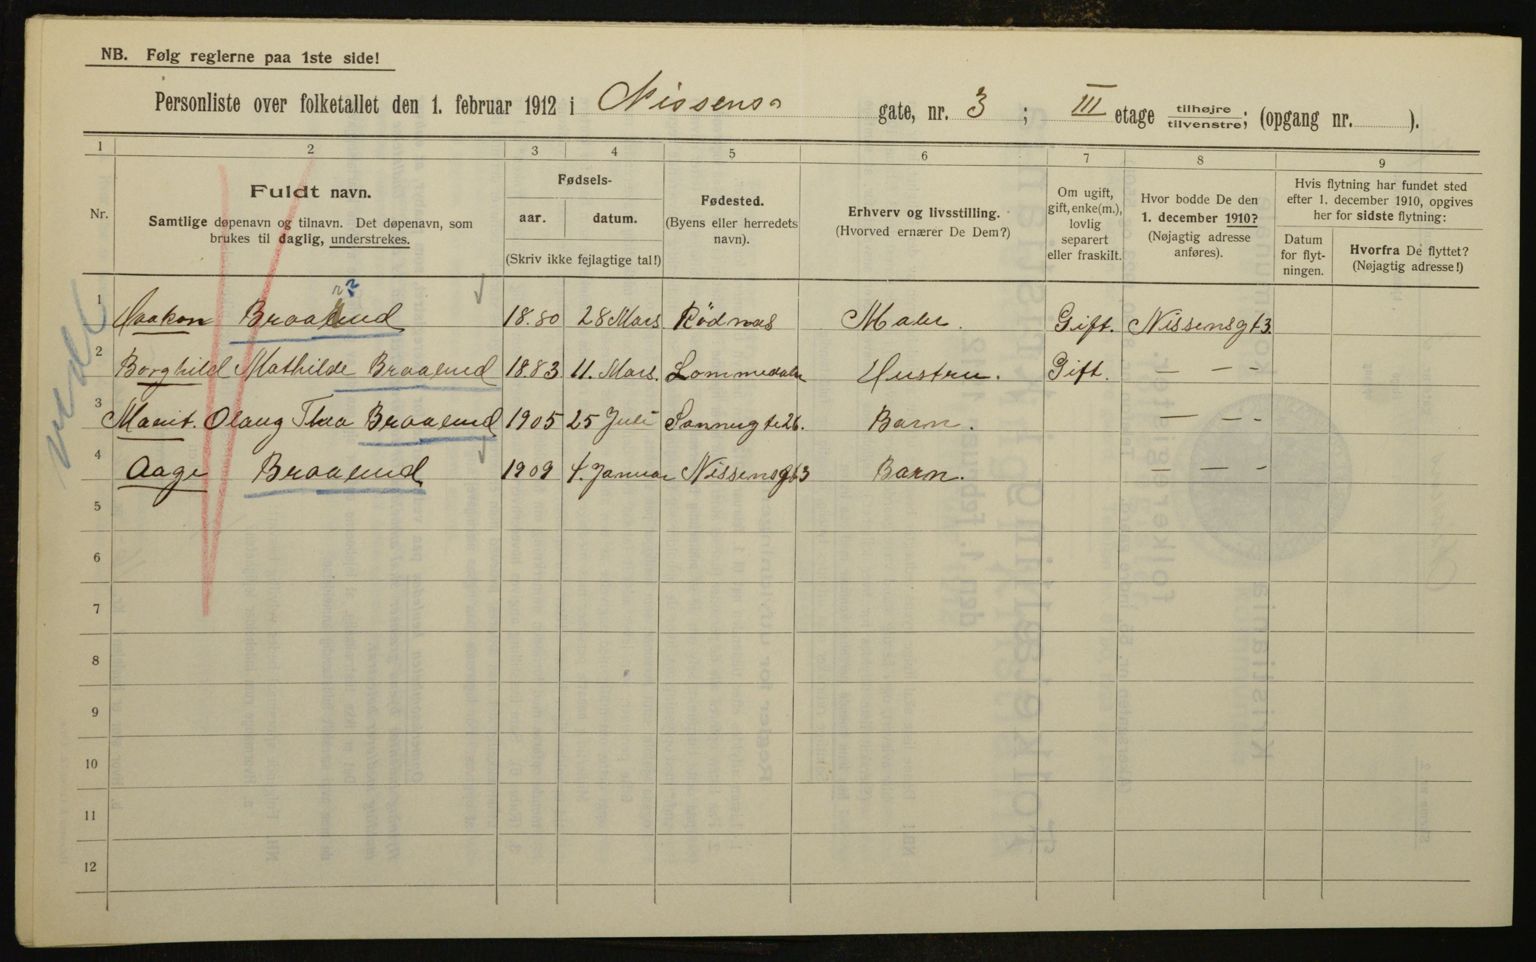 NB. Følg reglerne paa 1ste side!
Personliste over folketallet den 1. februar 1912 i Nissens gate, nr. 3 ; III etage tilhøjre tilvenstre; (opgang nr. ).
1 2 3 4 5 6 7 8 9
Nr.
Fuldt navn.
Samtlige døpenavn og tilnavn. Det døpenavn, som
brukes til daglig, understrekes.
Fødsels-
aar. datum.
(Skriv ikke fejlagtige tal!)
Fødested.
(Byens eller herredets
navn).
Erhverv og livsstilling.
(Hvorved ernærer De Dem?)
Om ugift,
gift, enke(m.),
lovlig
separert
eller fraskilt.
Hvor bodde De den
1. december 1910?
(Nøjagtig adresse
anføres).
Hvis flytning har fundet sted
efter 1. december 1910, opgives
her for sidste flytning:
Datum
for flyt-
ningen.
Hvorfra De flyttet?
(Nøjagtig adresse!)
1 Haakon 1880 28 Mars Rødnæs Maler. Gift. Nissensgt 3
2 Borghild Mathilde Braalend 1883 11. Mars. Lommedalen Hustru. Gift. — — -
3 Marit. Olaug Thea Braalend 1905 25 Juli Barn. — - -
4 Aage Braalend 1909 4. Januar Nissensgt 3 Barn. — — -
5
6
7
8
9
10
11
12